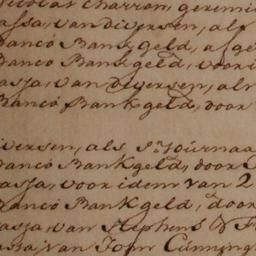 Nicolas Charron, geremi
assa, van Diversen, als
Banco Bankgeld, afge
Banco Bankgeld, voor i
assa, van Diversen, als
Banco Bankgeld, door
iversen, als P:r Journaa
Banco Bankgeld, door
assa, voor idem van 2
Banco Bankgeld, door
assa, van Stephens &
assa, van John Cunning